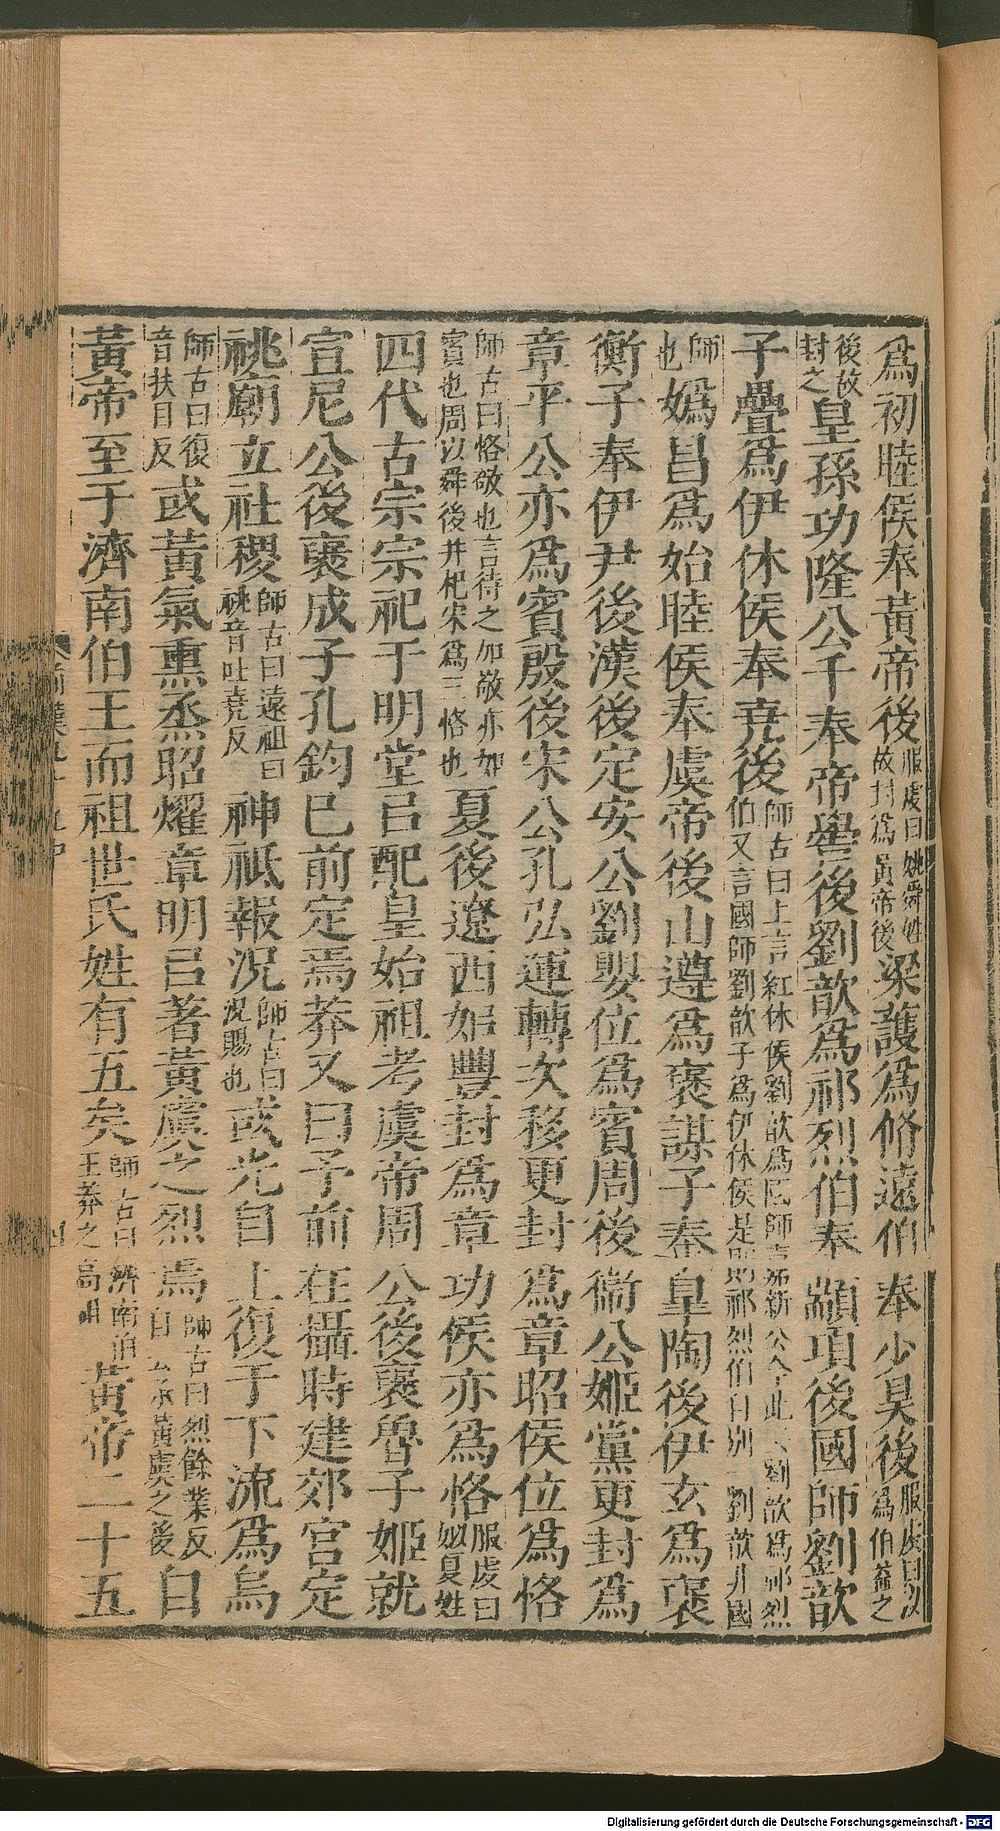 爲初睦侯奉黃帝後服虔曰姚舜姓故封爲黃帝後梁護爲脩遠伯奉少昊後服虔曰以爲伯益之
後故封之皇孫功隆公千奉帝嚳後劉歆爲祁烈伯奉顓頊後國師劉歆
子疊爲伊休侯奉堯後師古曰上言紅休侯劉歆爲國師嘉新公今此云劉歆爲祁烈伯又言國師劉歆子爲伊休侯是則祁烈伯自別一劉歆非國
師也嬀昌爲始睦侯奉虞帝後山遵爲褒謀子奉皐陶後伊玄爲褒
衡子奉伊尹後漢後定安公劉嬰位爲賓周後衞公姬黨更封爲
章平公亦爲賓殷後宋公孔弘運轉次移更封爲章昭侯位爲恪
師古曰恪敬也言待之加敬亦如賓也周以舜後并杞宋爲三恪也夏後遼西姒豐封爲章功侯亦爲恪服虔曰姒夏姓
四代古宗宗祀于明堂㠯配皇始祖考虞帝周公後襃魯子姬就
宣尼公後襃成子孔鈞巳前定焉莽又曰予前在攝時建郊宮定
祧廟立社稷師古曰遠祖曰祧音吐堯反神祇報況師古曰況賜也或光自上復于下流爲烏
師古曰復音扶目反或黃氣熏烝昭燿章明㠯著黃虞之烈焉師古曰烈餘業反自云承黃虞之後自
黃帝至于濟南伯王而祖世氏姓有五矣師古曰濟南伯王莽之高祖黃帝二十五
Digitalisierung gefördert durch die Deutsche Forschungsgemeinschaft - DFG